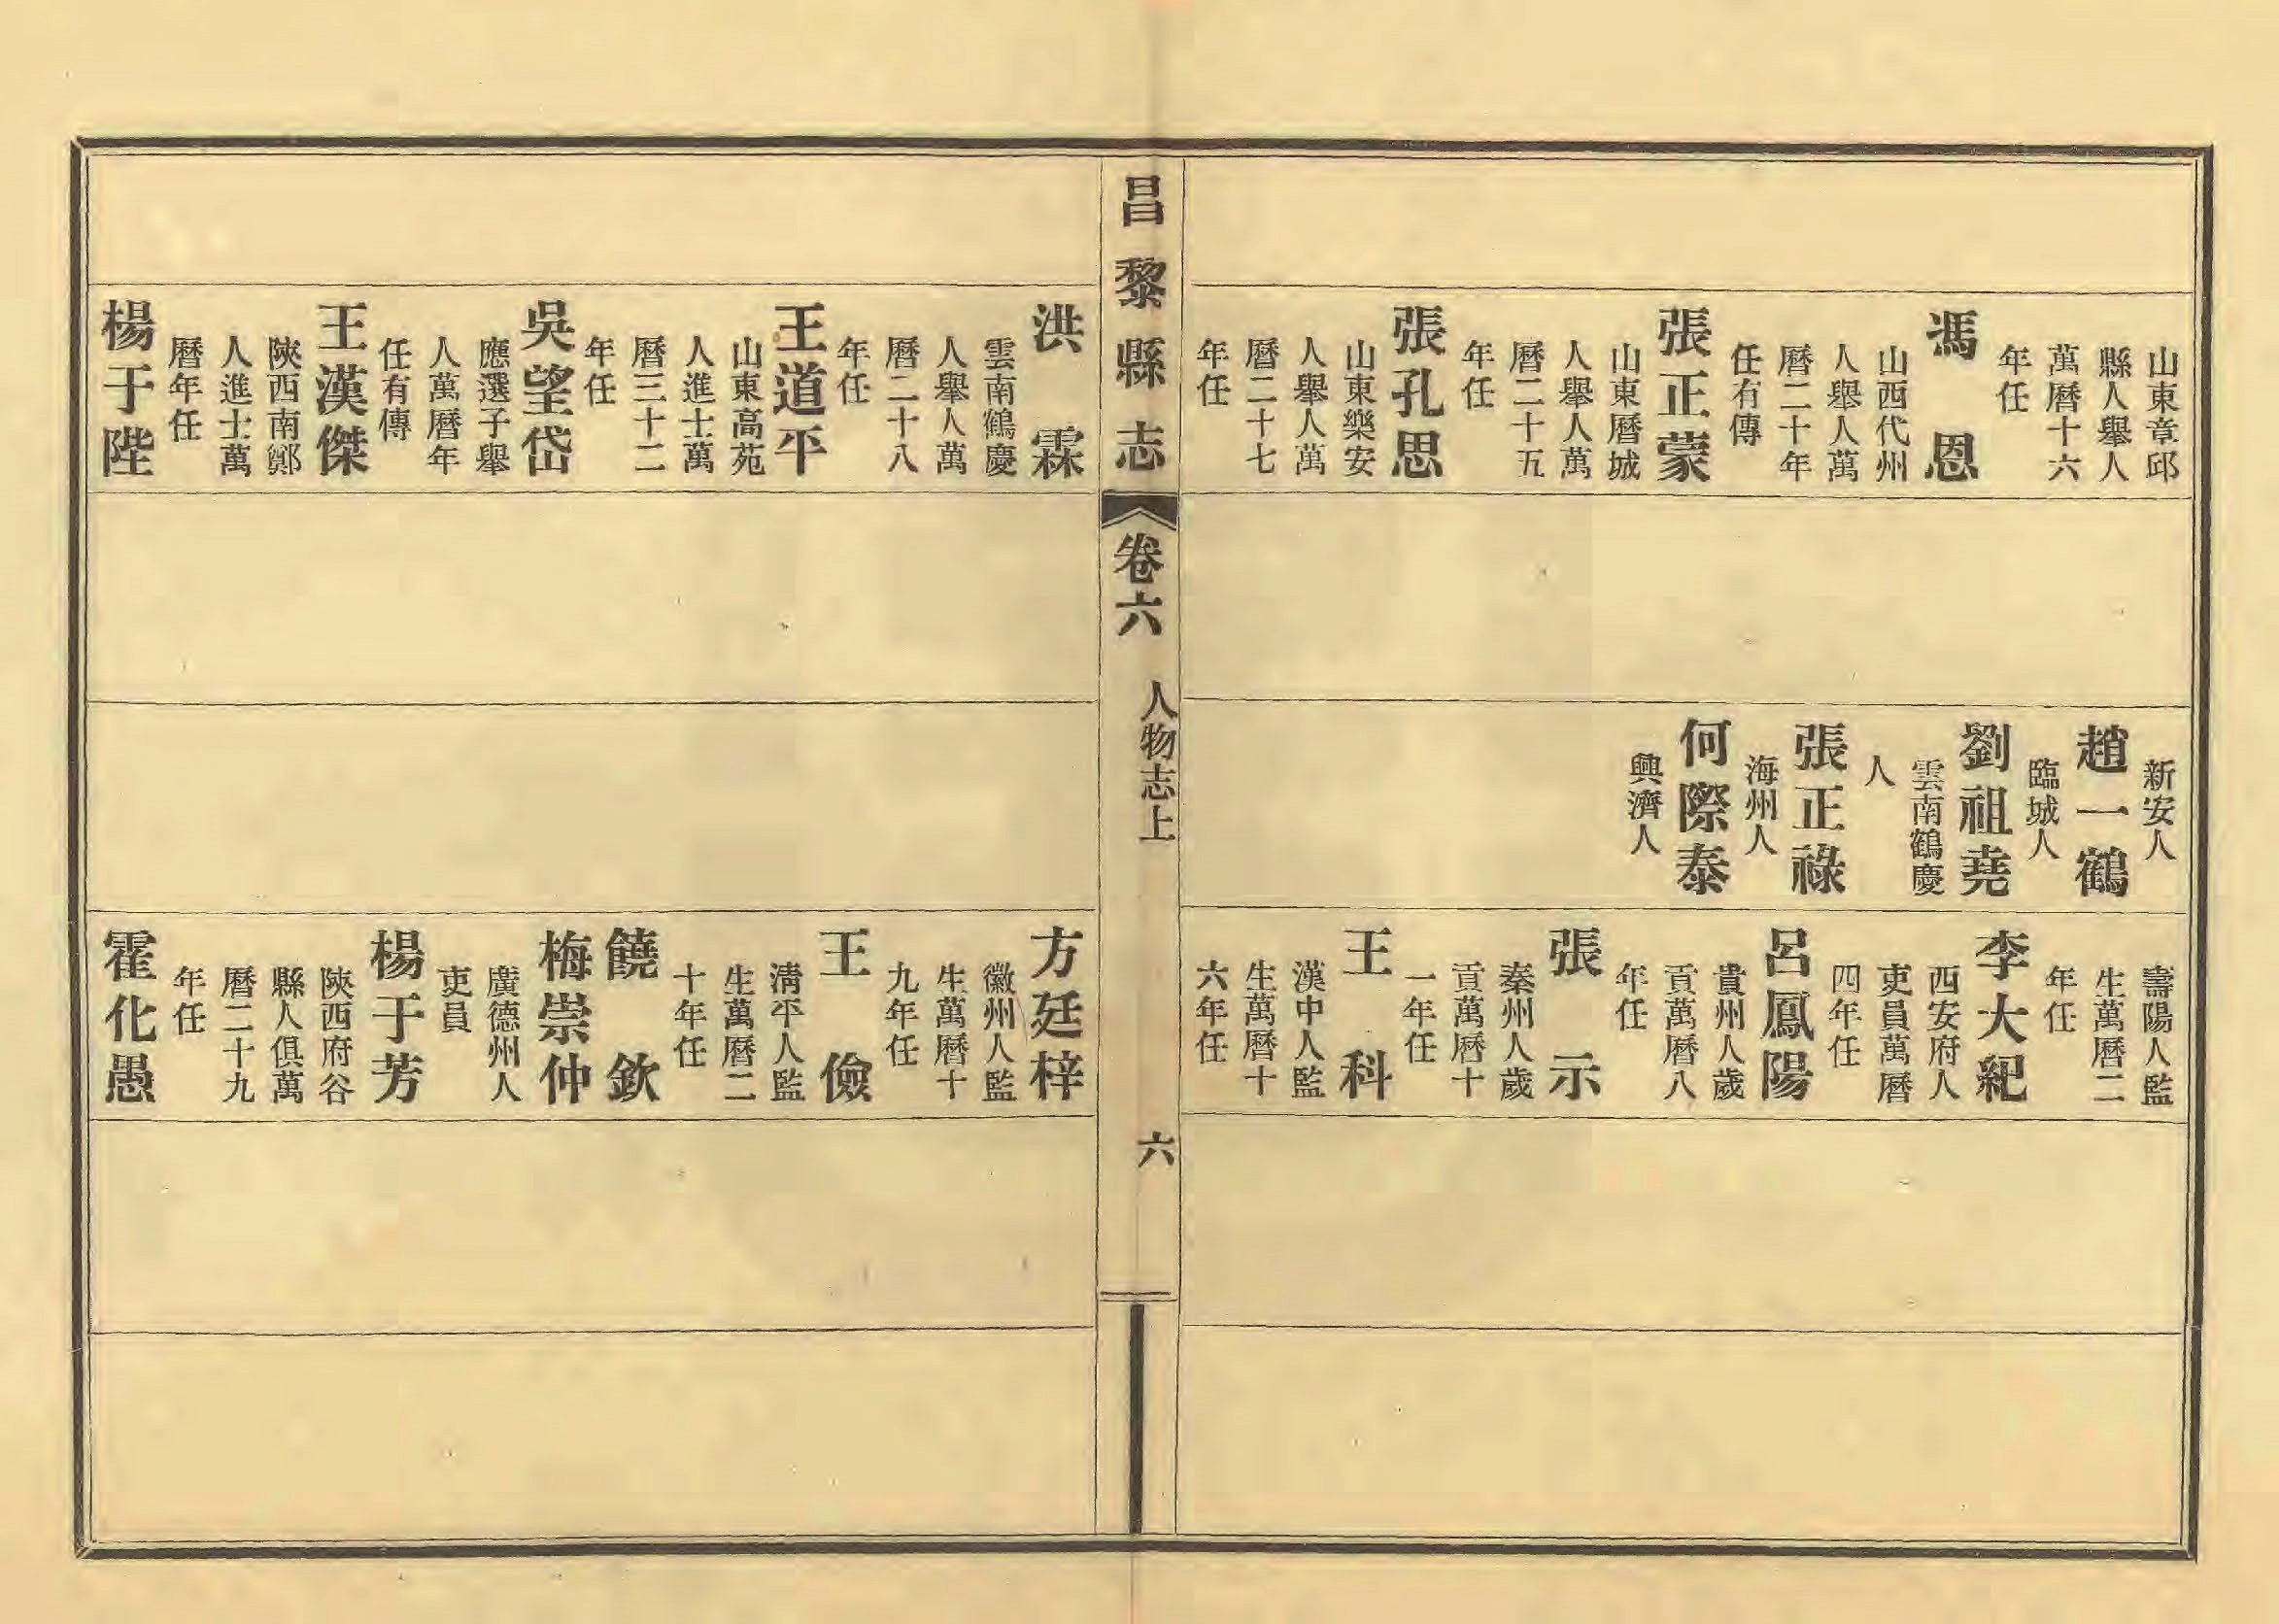 山東章邱
縣人舉人
萬曆十六
年任
馮恩
山西代州
人舉人萬
曆二十年
任有傳
張正蒙
山東曆城
人舉人萬
曆二十五
年任
張孔思
山東樂安
人舉人萬
曆二十七
年任
新安人
趙一鶴
臨城人
劉祖堯
雲南鶴慶
人
張正祿
海州人
何際泰
興濟人
壽陽人監
生萬曆二
年任
李大紀
西安府人
吏員萬曆
四年任
呂鳳陽
貴州人歲
貢萬曆八
年任
張示
秦州人歲
貢萬曆十
一年任
王科
漢中人監
生萬曆十
六年任
昌黎縣志
卷六
人物志上
六
洪霖
雲南鶴慶
人舉人萬
曆二十八
年任
王道平
山東高苑
人進士萬
曆三十二
年任
吳望岱
應選子舉
人萬曆年
任有傳
王漢傑
陝西南鄭
人進士萬
曆年任
楊于陛
方廷梓
徽州人監
生萬曆十
九年任
王儉
淸平人監
生萬曆二
十年任
饒欽
梅崇仲
廣德州人
吏員
楊于芳
陝西府谷
縣人俱萬
曆二十九
年任
霍化愚